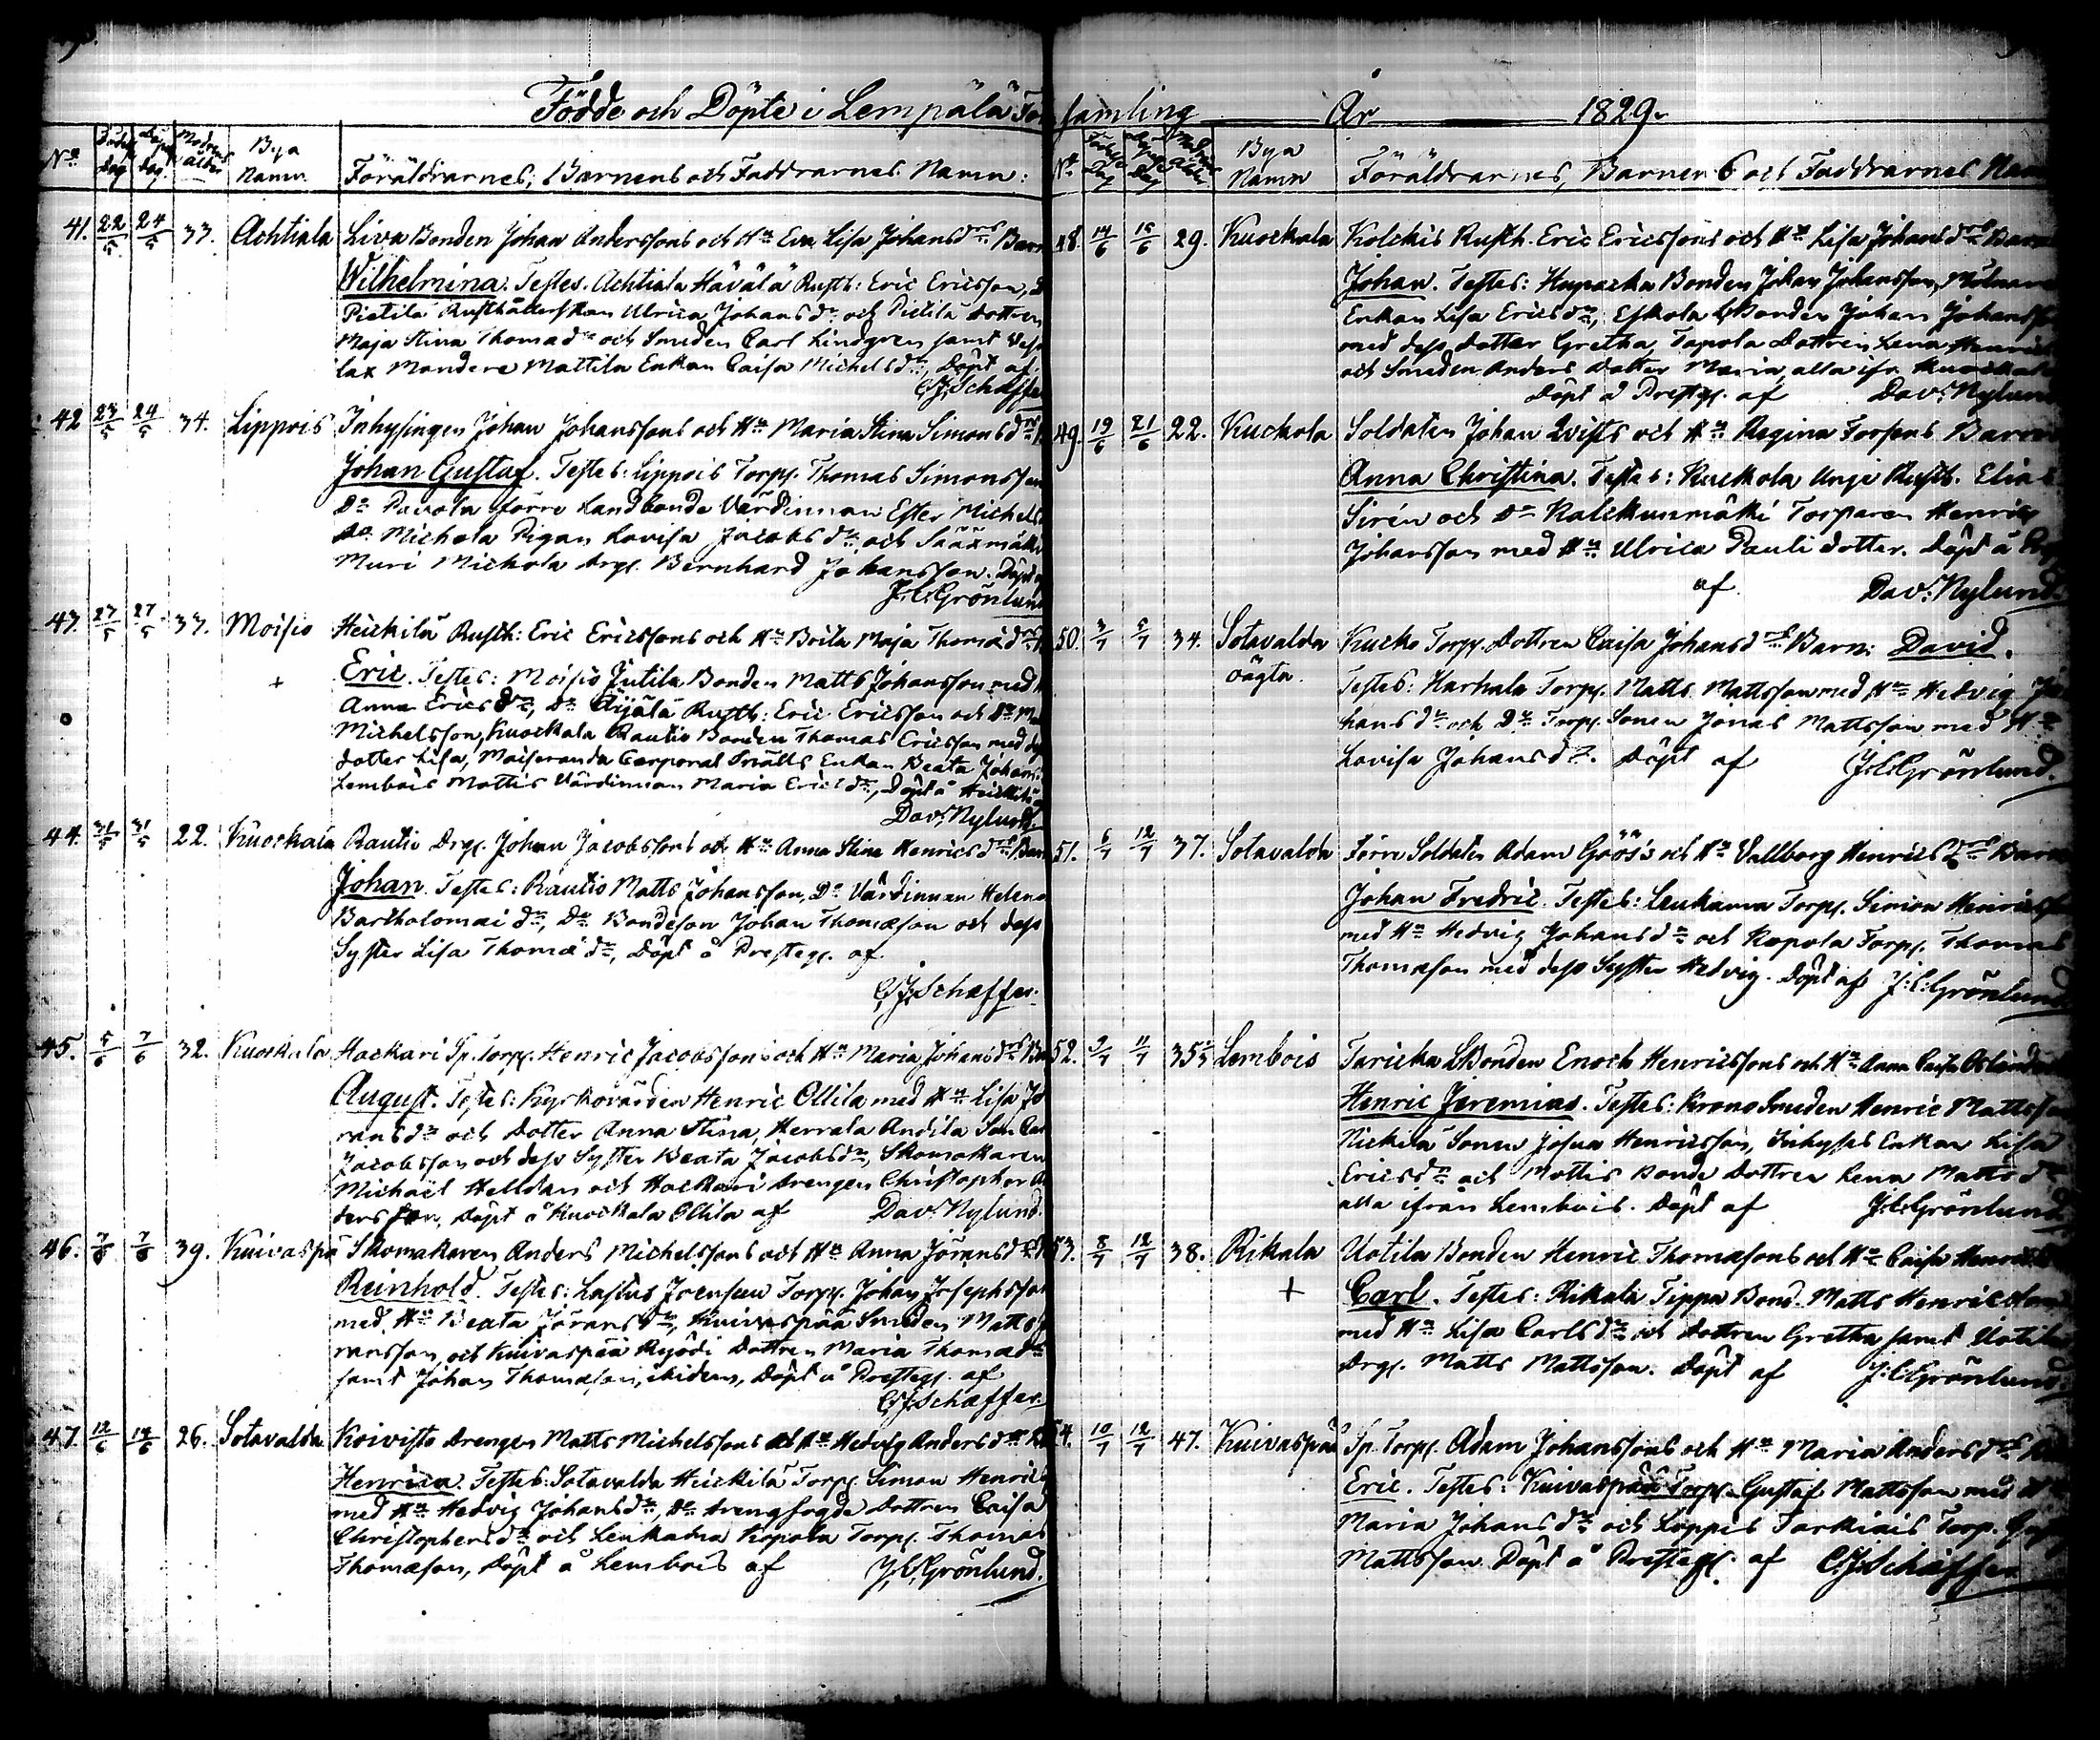 Födde och Döpte i Lempälä För
No Födelse Dag Döpelse Dag Modrens ålder Bya Namn Föräldrarnes, Barnens och Faddrarnes Namn:
41. 22/5 24/5 33. Achtiala Liva Bonden Johan Anderssons och Hu Eva Lisa Johansdrs Barn
Wilhelmina. Testes. Achtiala Hävälä Rusth: Eric Ericsson,
Pietilä Rusthållerskan Ulrica Johansdr och Pietilä dottren
Maja Stina Thomædr och Smeden Carl Lindgren samt
lax Mandere Mattila Enkan Caisa Michelsdr, Döpt af
C.J. Schæffer
42 23/5 24/5 34. Lippois Inhysingen Johan Johanssons och Hu Maria Stina Simonsdrs
Johan Gustaf. Testes: Lippois Torpp. Thomas Simonsson
Do Pavola förre Landbonde Värdinnan Ester Michels
Do Michola Pigan Lovisa Jacobsdr och Sääxmäki
Muri Mickola drgs. Bernhard Johansson. Döpt
J:C:Grönlund
43. 27/5 27/5 37. Moisio Heickilä Rusth: Eric Ericssons och Hu Brita Maja Thomædrs
+ Eric. Testes: Moisio Jutila Bonden Matts Johansson med
Anna Ericsdr, Do Äijälä Rusth: Eric Ericsson och Do
Michelsson, Kuockala Rautio Bonden Thomas Ericsson med
dotter Lisa, Moiseranda Corporal Enkan Beata Johans
Lembois Mattis Värdinnan Maria Ericsdr, Döpt å Heickilä
Dav: Nylund
44. 31/5 31/5 22. Kuockala Rautio Drgs. Johan Jacobssons och Hu Anna Stina Henricsdrs Barn
Johan. Testes: Rautio Matts Johansson, Do Värdinnan Helena
Bartholomaidr, Do Bondeson Johan Thomæson och dess
Syster Lisa Thomædr, Döpt å Prestegs. af
C.J. Schæffer.
45. 5/6 7/6 32. Kuockala Hackari Sp. Torpp. Henric Jacobssons och Hu Maria Johansdrs
August. Testes: Kyrkovärden Henric Ollila med Hu Lisa Jö
ransdr och Dotter Anna Stina, Herrala Andila Son Carl
Jacobsson och dess Syster Beata Jacobsdr, Skomakaren
Michaël Helldan och Hackari drengen Christopher An
dersson, Döpt å Kuockala Ollila af Dav: Nylund.
46. 7/6 7/6 39. Kuivaspä Skomakaren Anders Michelssons och Hu Anna Jöransdrs
Reinhold. Testes: Lastus Torpp. Johan Josephsson
med Hu Beata Jöransdr, Kuivaspää Smeden Matts
ransson och Kuivaspää Ryödi dottren Maria Thomædr
samt Johan Thomæson, ibidem, Döpt å Prestegs. af
C.J. Schæffer.
47. 12/6 14/6 26. Sotavalda Koivisto drengen Matts Michelssons och Hu Hedvig Andersdrs
Henrica. Testes: Sotavalda Heickilä Torpp. Simon Henrics
med Hu Hedvig Johansdr, Do drengfogde dottren Caisa
Christophersdr och Leukama Kopola Torpp. Thomas
Thomæson, Döpt å Lembois af J.C. Grönlund.
samling År 1829.
No Födelse Dag Döpelse Dag Modrens ålder Bya Namn Föräldrarnes, Barnens och Faddrarnes Nam
48. 14/6 15/6 29. Kuockala Kolckis Rusth. Eric Ericssons och Hu Lisa Johansdrs Barn
Johan. Testes: Huparka Bonden Johan Johansson, Mölnare
Enkan Lisa Ericsdr, Eskola LBonden Johan Johansson
med dess dotter Gretha, Tapola Dottren Lena Henrics
och Smeden Anders dotter Maria, alla ifr Kuockala
Döpt å Prestgs. af Dav: Nylund
49. 19/6 21/6 22. Kuckola Soldaten Johan Qvists och Hu Regina Forsens Barn
Anna Christina. Testes: Kuckola Unge Rusth. Elias
Sirén och Do Kalckunmäki Torparen Henric
Johansson med Hu Ulrica Pauli dotter. Döpt å
af Dav: Nylund.
50. 3/7 5/7 34. Sotavalda Kucko Torpp. Dottren Caisa Johansdrs Barn: David.
oägta. Testes: Harhala Torpp. Matts Mattsson med Hu Hedvig Jo
hansdr och Do Torpp. Sonen Jonas Mattsson med Hu
Lovisa Johansdr. Döpt af J:C:Grönlund.
51. 6/7 12/7 37. Sotavalda Förre Soldaten Adam Göös's och Hu Vallborg Henricsdrs Barn
Johan Fredric. Testes: Leukama Torpp. Simon Henricsson
med Hu Hedvig Johansdr och Kopola Torpp. Thomas
Thomæson med dess Syster Hedvig. Döpt af J:C:Grönlund
52. 9/7 11/7 35 Lembois Taricka LBonden Enoch Henricssons och Hu Anna Caisa
Henric Jeremias. Testes: Krono Smeden Henric Mattsson
Nickilä Sonen Josua Henricsson, Inhyses Enkan Lisa
Ericsdr och Mattis Bonde Dottren Lena Mattsdr
alla ifrån Lembois. Döpt af J:C:Grönlund
53. 8/7 12/7 38. Rikala Uotila Bonden Henric Thomæsons och Hu Caisa Henricsd
+ Carl. Testes: Rikala Tippa Bond. Matts Henricsson
med Hu Lisa Carlsdr och dottren Gretha samt Uotila
Drgs. Matts Mattsson. Döpt af J:C:Grönlund
54. 10/7 12/7 47. Kuivaspää Sp. Torpp. Adam Johanssons och Hu Maria Andersdrs
Eric. Testes: Kuivaspää Torpp. Gustaf Mattsson med Hu
Maria Johansdr och Loppis Torp.
Mattsson. Döpt å Prestegs. af C.J. Schæffer